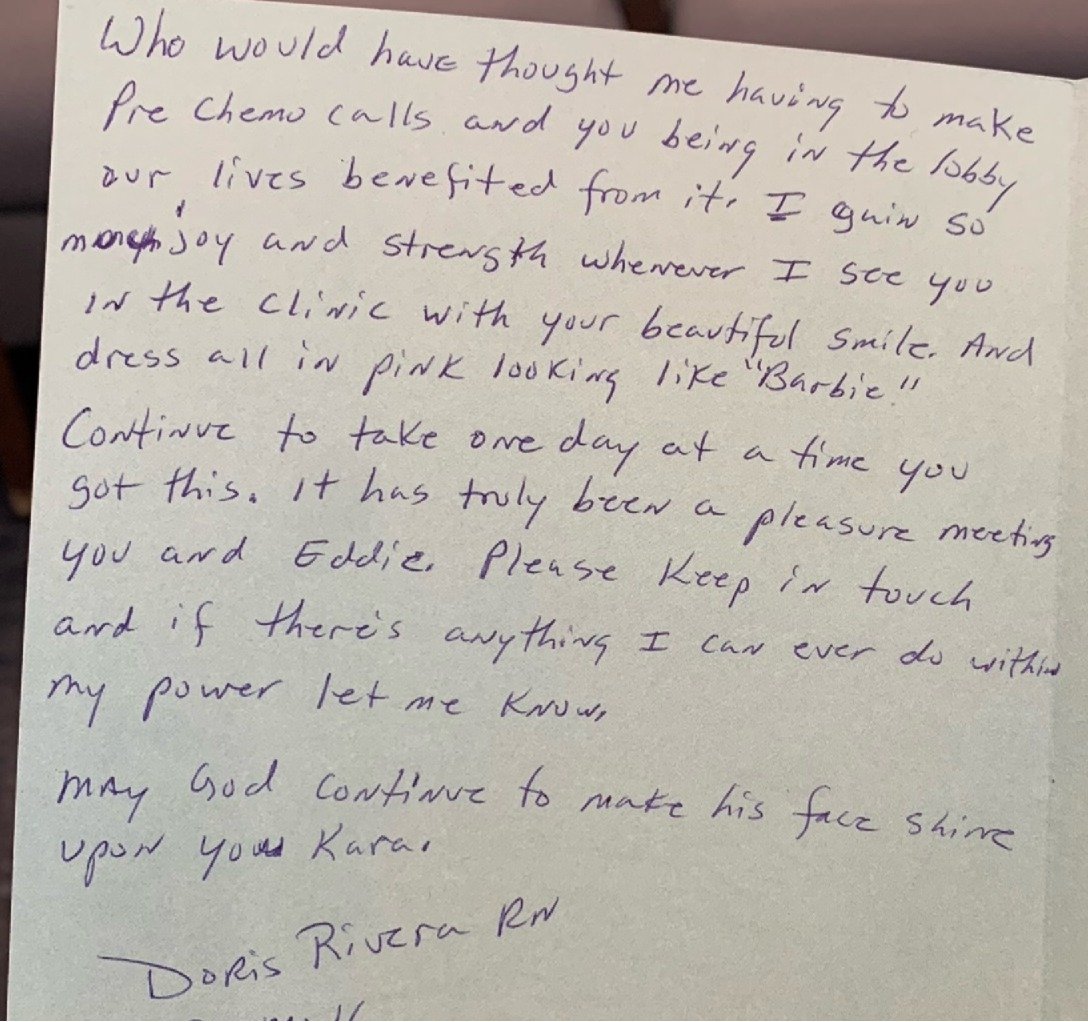 Who would have thought me having to make
Pre Chemo calls and you being in the lobby
our lives benefited from it. I gain so
much joy and strength whenever I see you
in the clinic with your beautiful smile. And
dress all in pink looking like "Barbie."
Continue to take one day at a time you
got this. It has truly been a pleasure meeting
you and Eddie. Please Keep in touch
and if there's anything I can ever do within
my power let me know.
May God continue to make his face shine
upon you Kara.
Doris Rivera RN